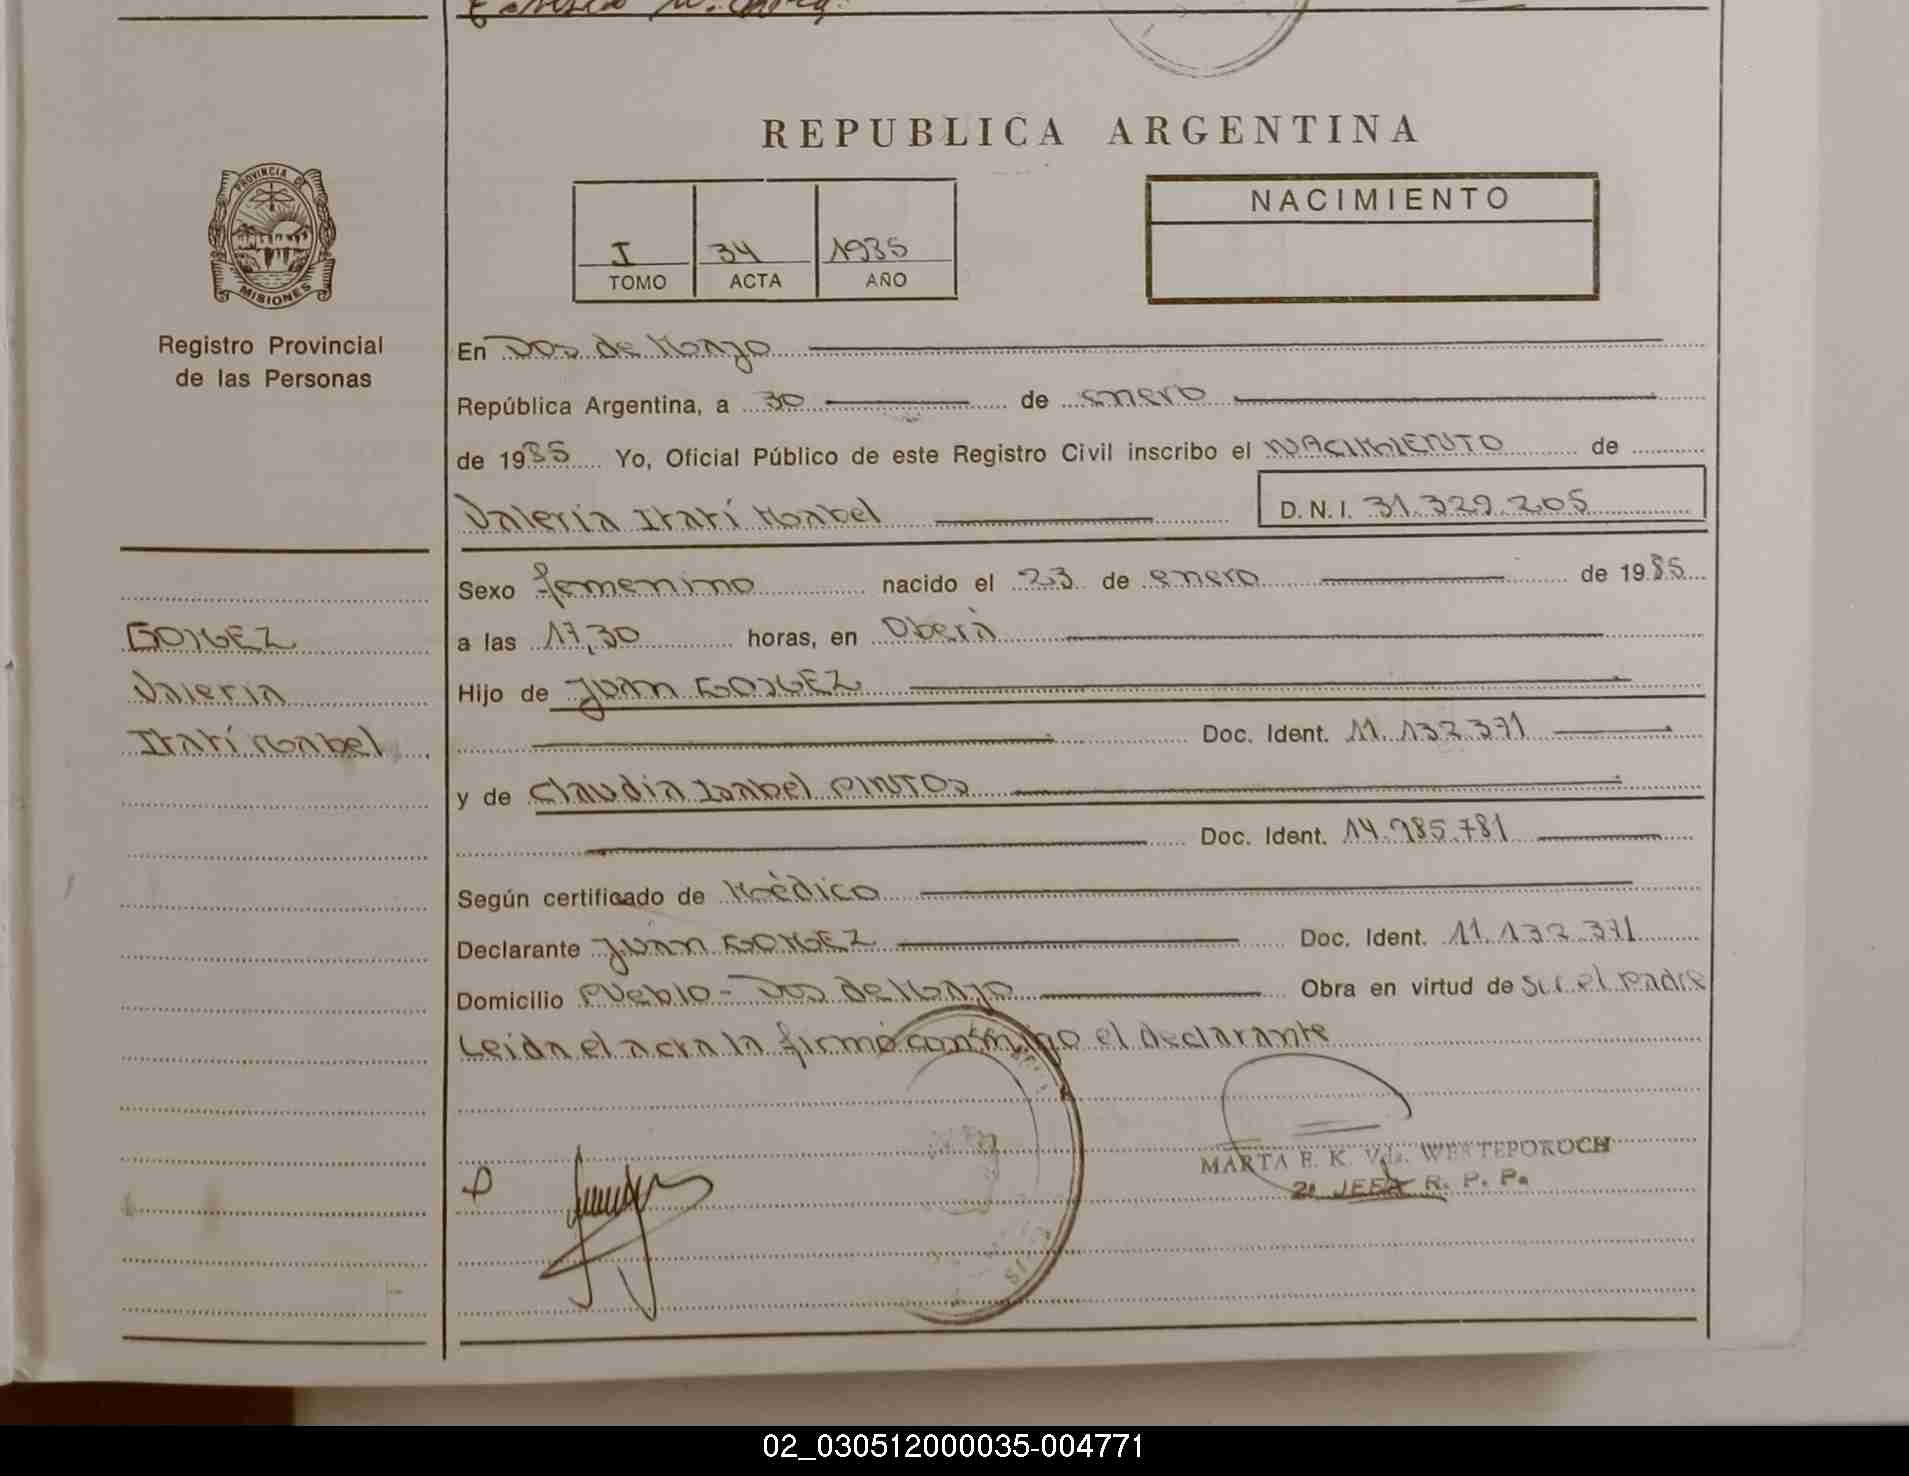 REPUBLICA ARGENTINA
PROVINCIA DE
MISIONES
Registro Provincial
de las Personas
I 34 1985
TOMO ACTA AÑO
NACIMIENTO
En Dos de Mayo
República Argentina, a 30 de enero
de 1985 Yo, Oficial Público de este Registro Civil inscribo el NACIMIENTO de
Valeria Itatí Mabel D.N.I. 31.329.205
GOMEZ
Valeria
Itatí Mabel
Sexo femenino nacido el 23 de enero de 1985
a las 17,30 horas, en Oberà
Hijo de Juan GOMEZ
Doc. Ident. 11.132.371
y de Claudia Isabel PINTOS
Doc. Ident. 14.985.781
Según certificado de Mèdico
Declarante Juan GOMEZ Doc. Ident. 11.132.371
Domicilio Pueblo - Dos de Mayo Obra en virtud de ser el padre
Leida el acta la firmó conmigo el declarante
MARTA E. K. V. WESTEPOROCH
2a JEFA R. P. P.
02_030512000035-004771